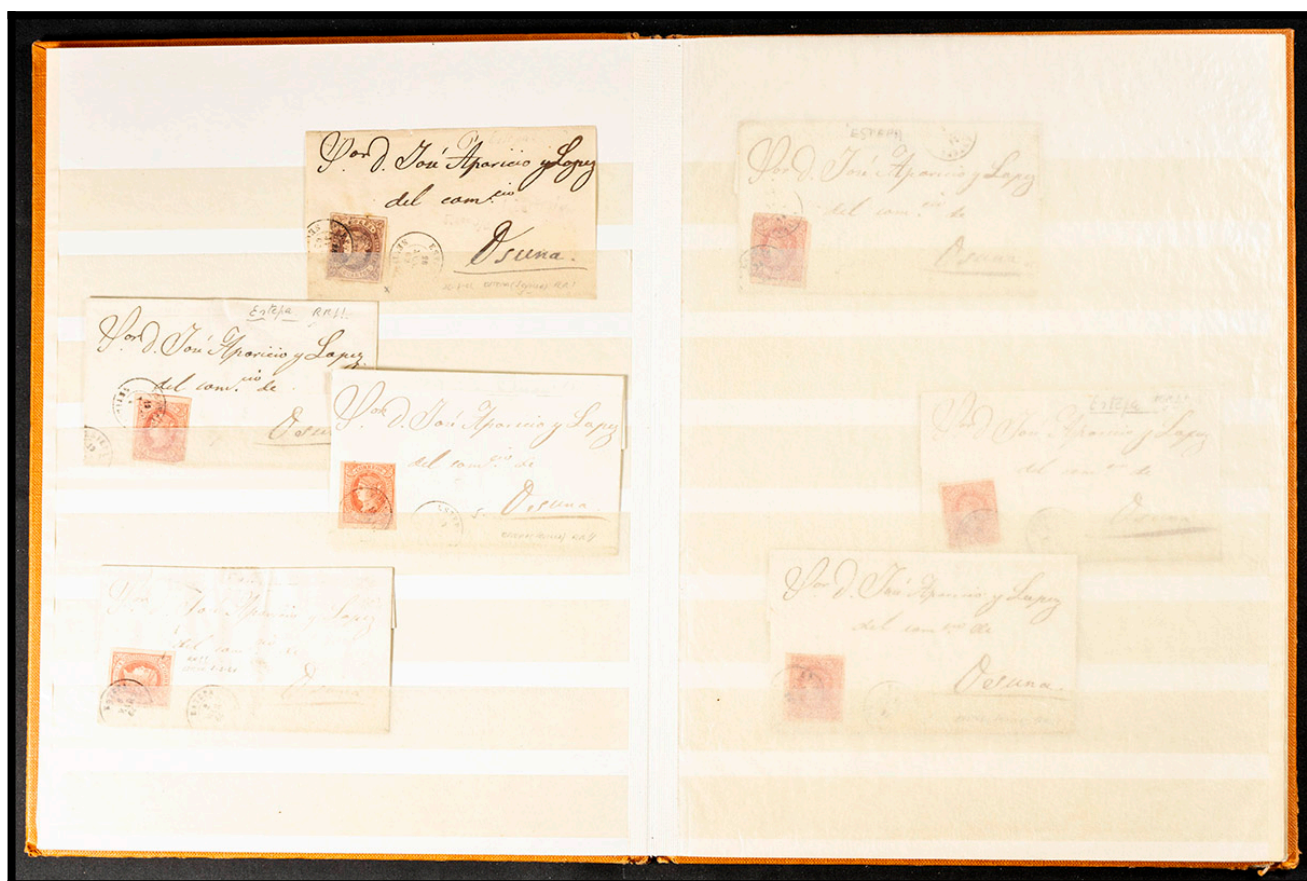 Sor D. José Aparicio y Lopez
del comcio
Osuna.
Estepa RR!!
Sor D. José Aparicio y Lopez
del comcio de
Osuna
Sor D. José Aparicio y Lopez
del comcio de
Osuna.
Sor D. José Aparicio y Lopez
del comcio de
Osuna
ESTEPA
Sor D. José Aparicio y Lopez
del comcio de
Osuna.
Estepa
Sor D. José Aparicio y Lopez
del comcio de
Osuna
Sor D. José Aparicio y Lopez
del comcio de
Osuna.